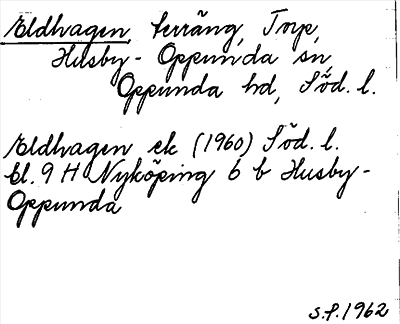 Eldhagen terräng, Torp,
Husby-Oppunda sn
Oppunda hd, Söd. l.
Eldhagen ek (1960) Söd. l.
bl. 9 H Nyköping 6 b Husby-
Oppunda
S.F. 1962